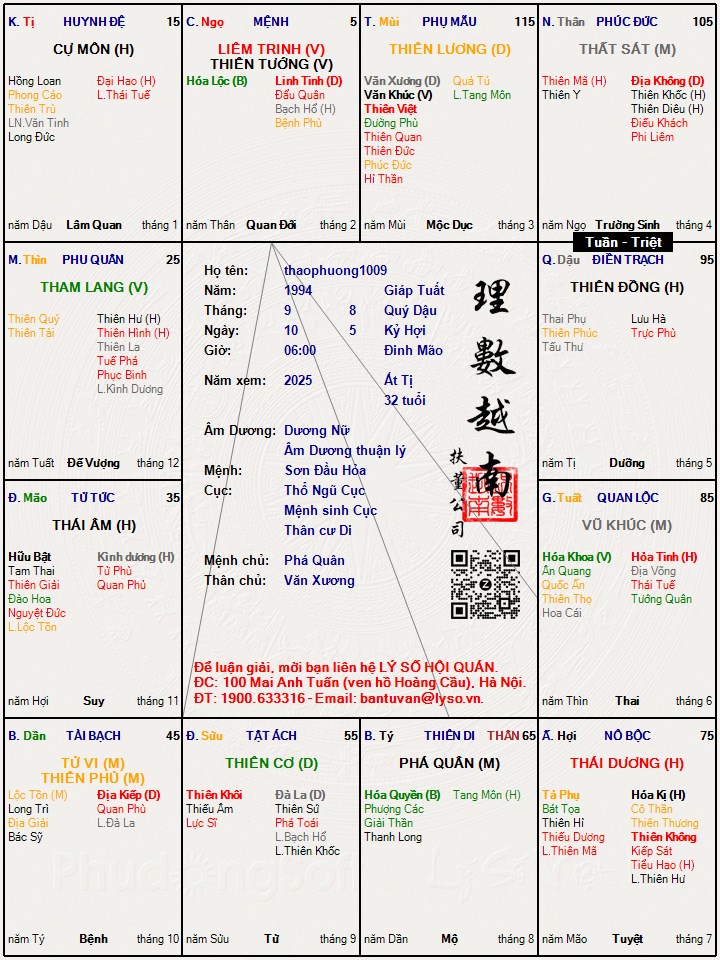 K. Tị HUYNH ĐỆ 15
CỰ MÔN (H)
Hồng Loan Đại Hao (H)
Phong Cáo L.Thái Tuế
Thiên Trù
LN.Văn Tinh
Long Đức
năm Dậu Lâm Quan tháng 1
C. Ngọ MỆNH 5
LIÊM TRINH (V)
THIÊN TƯỚNG (V)
Hóa Lộc (B) Linh Tinh (D)
Đẩu Quân
Bạch Hổ (H)
Bệnh Phù
năm Thân Quan Đới tháng 2
T. Mùi PHỤ MẪU 115
THIÊN LƯƠNG (D)
Văn Xương (D) Quả Tú
Văn Khúc (V) L.Tang Môn
Thiên Việt
Đường Phù
Thiên Quan
Thiên Đức
Phúc Đức
Hỉ Thần
năm Mùi Mộc Dục tháng 3
N. Thân PHÚC ĐỨC 105
THẤT SÁT (M)
Thiên Mã (H) Địa Không (D)
Thiên Y Thiên Khốc (H)
Thiên Diêu (H)
Điếu Khách
Phi Liêm
năm Ngọ Trường Sinh tháng 4
Tuần - Triệt
M. Thìn PHU QUÂN 25
THAM LANG (V)
Thiên Quý Thiên Hư (H)
Thiên Tài Thiên Hình (H)
Thiên La
Tuế Phá
Phục Binh
L.Kình Dương
năm Tuất Đế Vượng tháng 12
Họ tên: thaophuong1009
Năm: 1994 Giáp Tuất
Tháng: 9 8 Quý Dậu
Ngày: 10 5 Kỷ Hợi
Giờ: 06:00 Đinh Mão
Năm xem: 2025 Ất Tị
32 tuổi
Âm Dương: Dương Nữ
Âm Dương thuận lý
Mệnh: Sơn Đầu Hỏa
Cục: Thổ Ngũ Cục
Mệnh sinh Cục
Thân cư Di
Mệnh chủ: Phá Quân
Thân chủ: Văn Xương
理數越南
扶董公司
Để luận giải, mời bạn liên hệ LÝ SỐ HỘI QUÁN.
ĐC: 100 Mai Anh Tuấn (ven hồ Hoàng Cầu), Hà Nội.
ĐT: 1900.633316 - Email: bantuvan@lyso.vn.
Q. Dậu ĐIỀN TRẠCH 95
THIÊN ĐỒNG (H)
Thai Phụ Lưu Hà
Thiên Phúc Trực Phù
Tấu Thư
năm Tị Dưỡng tháng 5
Đ. Mão TỬ TỨC 35
THÁI ÂM (H)
Hữu Bật Kình dương (H)
Tam Thai Tử Phù
Thiên Giải Quan Phủ
Đào Hoa
Nguyệt Đức
L.Lộc Tồn
năm Hợi Suy tháng 11
G. Tuất QUAN LỘC 85
VŨ KHÚC (M)
Hóa Khoa (V) Hỏa Tinh (H)
Ân Quang Địa Võng
Quốc Ấn Thái Tuế
Thiên Thọ Tướng Quân
Hoa Cái
năm Thìn Thai tháng 6
B. Dần TÀI BẠCH 45
TỬ VI (M)
THIÊN PHỦ (M)
Lộc Tồn (M) Địa Kiếp (D)
Long Trì Quan Phù
Địa Giải L.Đà La
Bác Sỹ
năm Tý Bệnh tháng 10
Đ. Sửu TẬT ÁCH 55
THIÊN CƠ (D)
Thiên Khôi Đà La (D)
Thiếu Âm Thiên Sứ
Lực Sĩ Phá Toái
L.Bạch Hổ
L.Thiên Khốc
năm Sửu Tử tháng 9
B. Tý THIÊN DI THÂN 65
PHÁ QUÂN (M)
Hóa Quyền (B) Tang Môn (H)
Phượng Các
Giải Thần
Thanh Long
năm Dần Mộ tháng 8
Ấ. Hợi NÔ BỘC 75
THÁI DƯƠNG (H)
Tả Phụ Hóa Kị (H)
Bát Tọa Cô Thần
Thiên Hỉ Thiên Thương
Thiếu Dương Thiên Không
L.Thiên Mã Kiếp Sát
Tiểu Hao (H)
L.Thiên Hư
năm Mão Tuyệt tháng 7